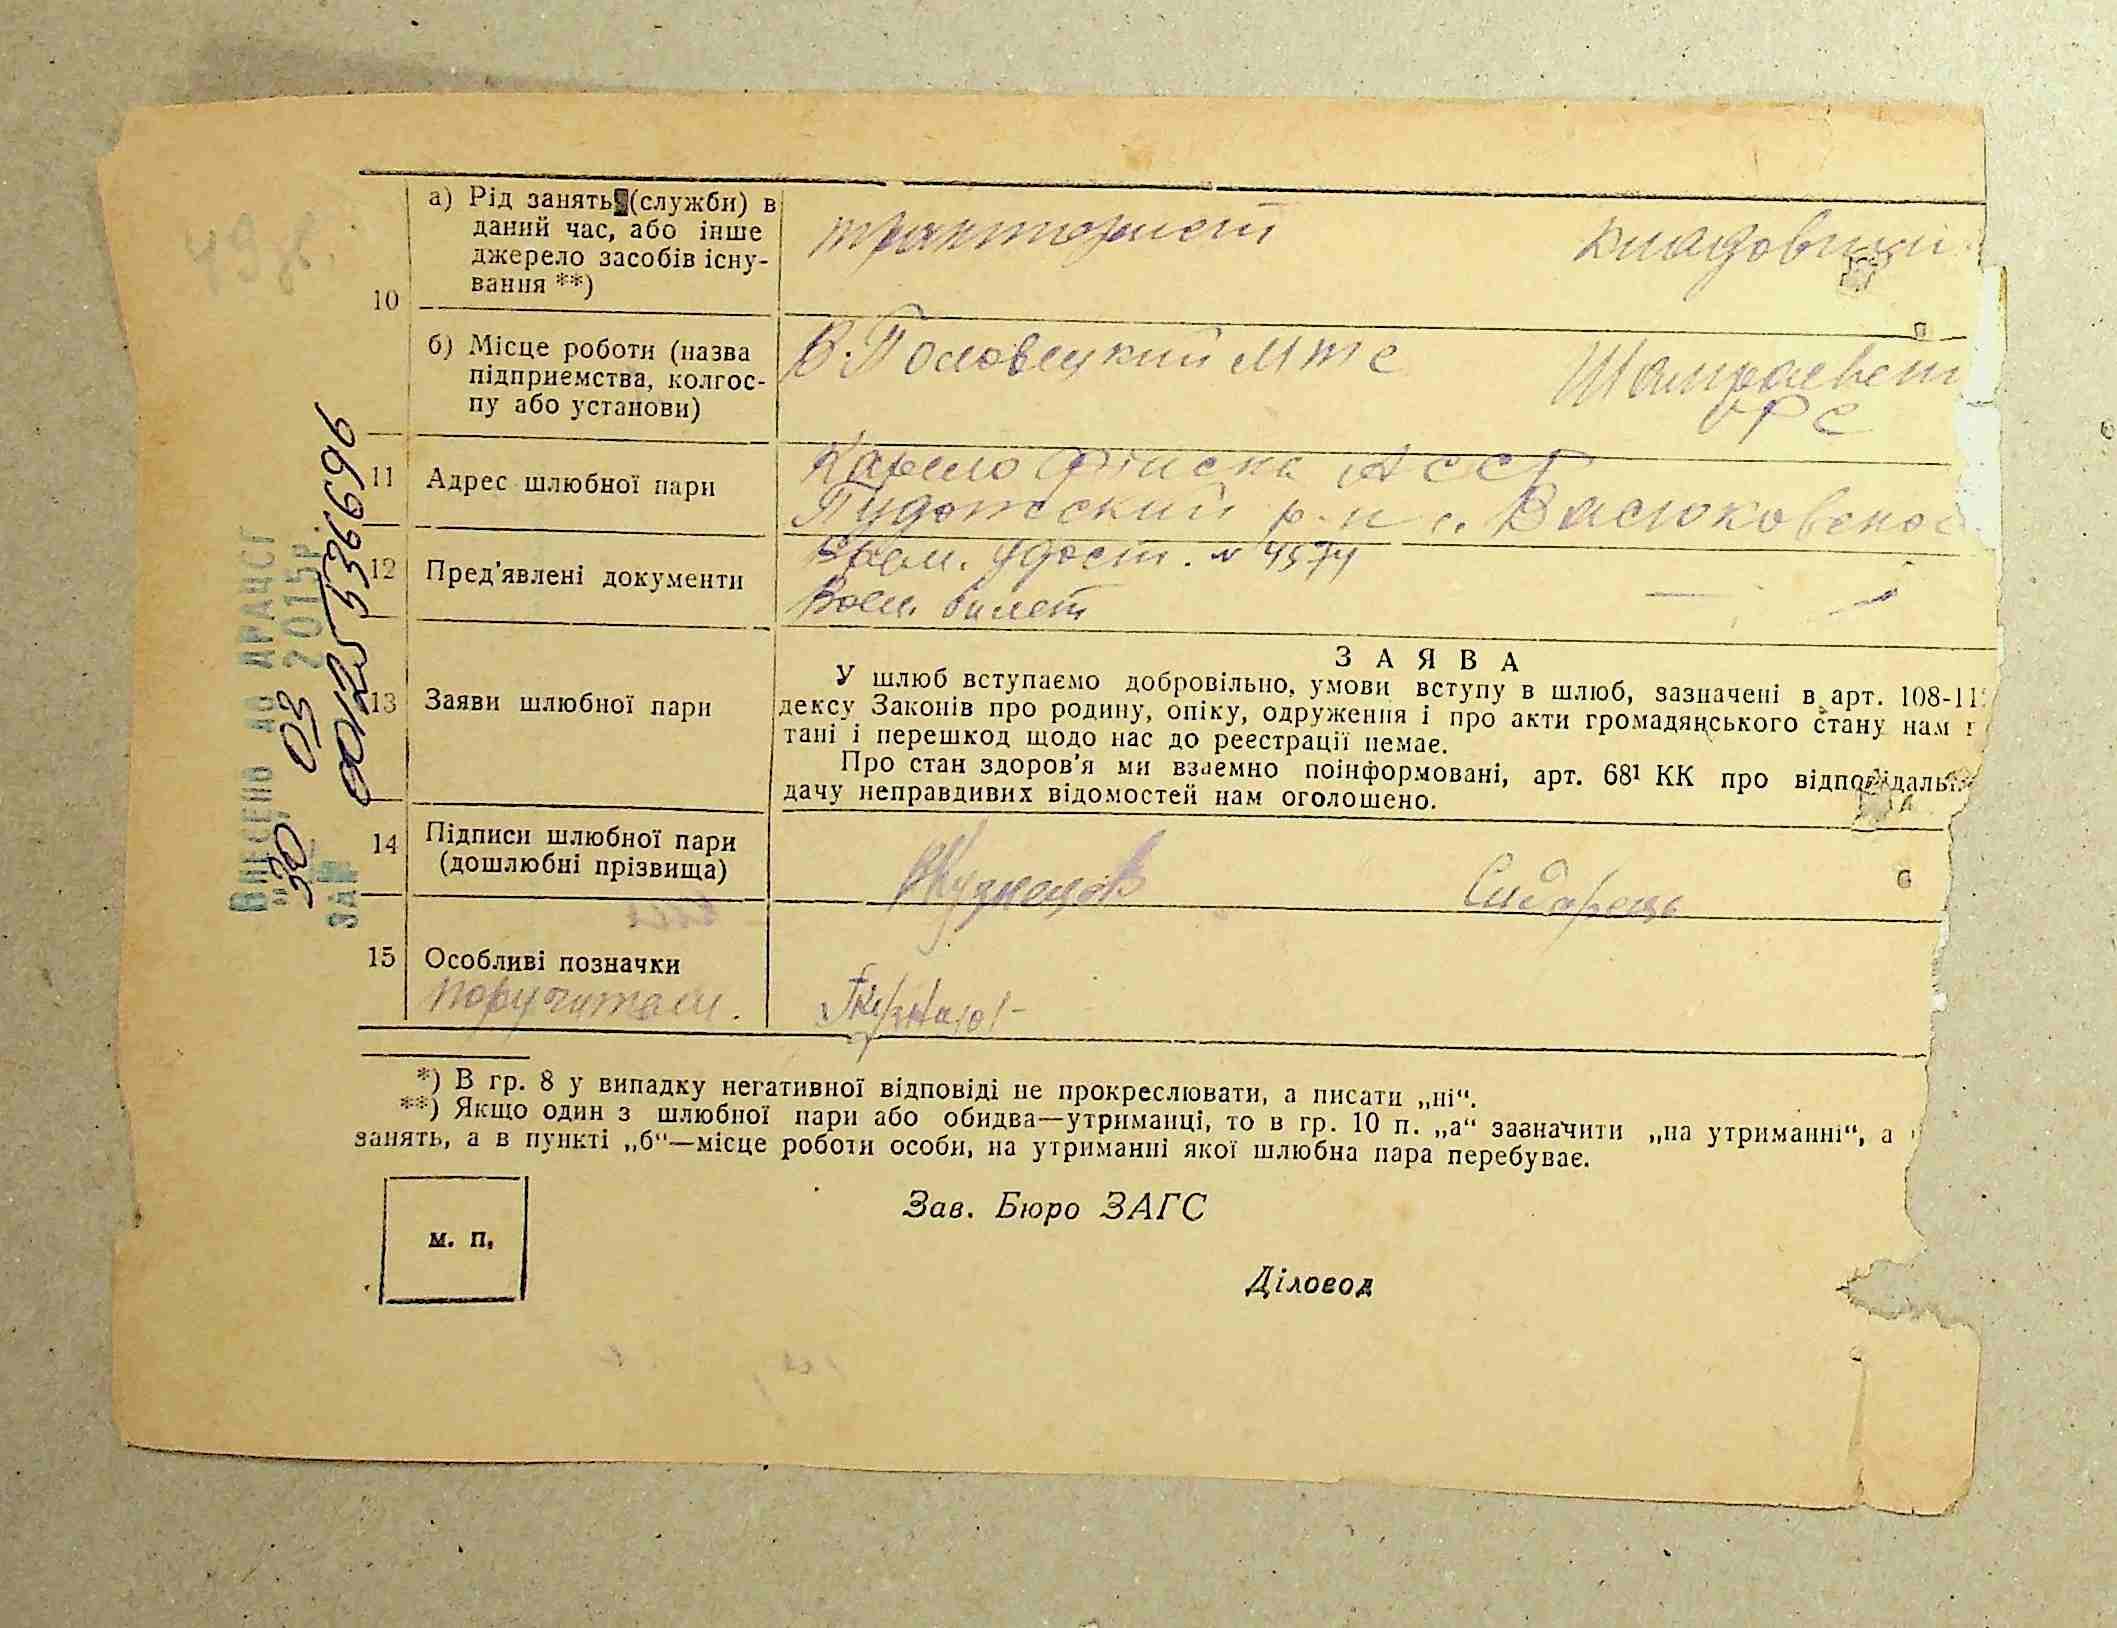 49
а) Рід занять (служби) в
даний час, або інше
джерело засобів існу-
вання **)
тракторист
кладовщи
10
б) Місце роботи (назва
підприємства, колгос-
пу або установи)
В. Половецкий мтс
Шамраевст
РС
11
Адрес шлюбної пари
Карело Фінска АССР
Пудожский р-н с. Васюковско
12
Пред'явлені документи
Врем. удост. № 4574
Воен. билет
13
Заяви шлюбної пари
ЗАЯВА
У шлюб вступаємо добровільно, умови вступу в шлюб, зазначені в арт. 108-11
дексу Законів про родину, опіку, одруження і про акти громадянського стану нам
тані і перешкод щодо нас до реєстрації немає.
Про стан здоров'я ми взаємно поінформовані, арт. 68¹ КК про відповідальн
дачу неправдивих відомостей нам оголошено.
14
Підписи шлюбної пари
(дошлюбні прізвища)
Кузнецов
Сидорець
15
Особливі позначки
*) В гр. 8 у випадку негативної відповіді не прокреслювати, а писати „ні“.
**) Якщо один з шлюбної пари або обидва—утриманці, то в гр. 10 п. „а“ зазначити „на утриманні“, а
занять, а в пункті „б“—місце роботи особи, на утриманні якої шлюбна пара перебуває.
м. п.
Зав. Бюро ЗАГС
Діловод
Внесено до ДРАЦСГ
"30" 03 2015р.
за № 00125536696